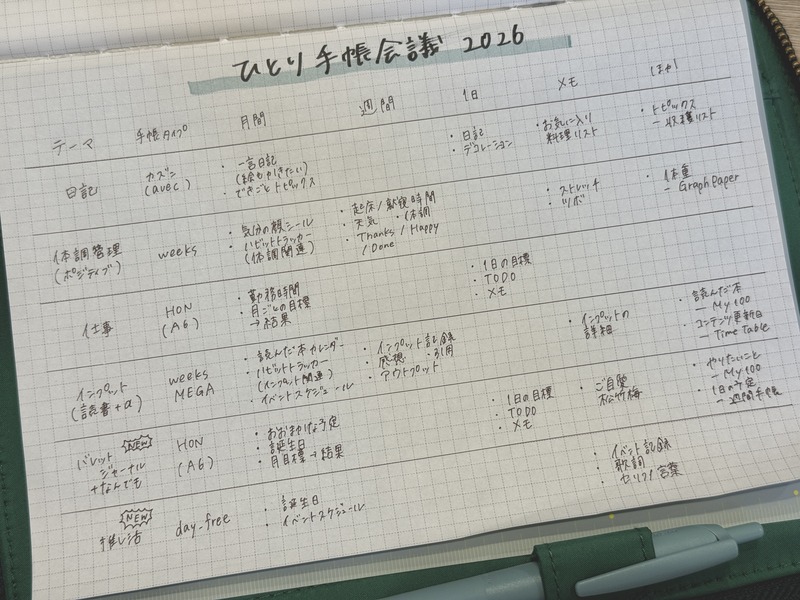 ひとり手帳会議 2026
テーマ 手帳タイプ 月間 週間 1日 メモ ほか
日記
カズン
(avec)
・一言日記
(絵もかきたい)
・できごとトピックス
・日記
・デコレーション
・お気に入り
料理リスト
・トピックス
― 収穫リスト
体調管理
(ポジティブ)
weeks
・気分の顔シール
・ハビットトラッカー
(体調関連)
・起床/就寝時間
・天気 ・体調
・Thanks / Happy
/ Done
・ストレッチ
・ツボ
・体重
― Graph Paper
仕事
HON
(A6)
・勤務時間
・月ごとの目標
→結果
・1日の目標
・TODO
・メモ
インプット
(読書+α)
weeks
MEGA
・読んだ本カレンダー
・ハビットトラッカー
(インプット関連)
・イベントスケジュール
・インプット記録
・感想 ・引用
・アウトプット
・インプットの
詳細
・読んだ本
― My 100
・コンテンツ更新日
― Time Table
NEW
バレット
ジャーナル
+なんでも
HON
(A6)
・おおまかな予定
・誕生日
・月目標→結果
・1日の目標
・TODO
・メモ
・ご自愛
松竹梅
・やりたいこと
― My 100
・1日の予定
― 週間手帳
NEW
推し活
day_free
・誕生日
・イベントスケジュール
・イベント記録
・歌詞
・セリフ/言葉